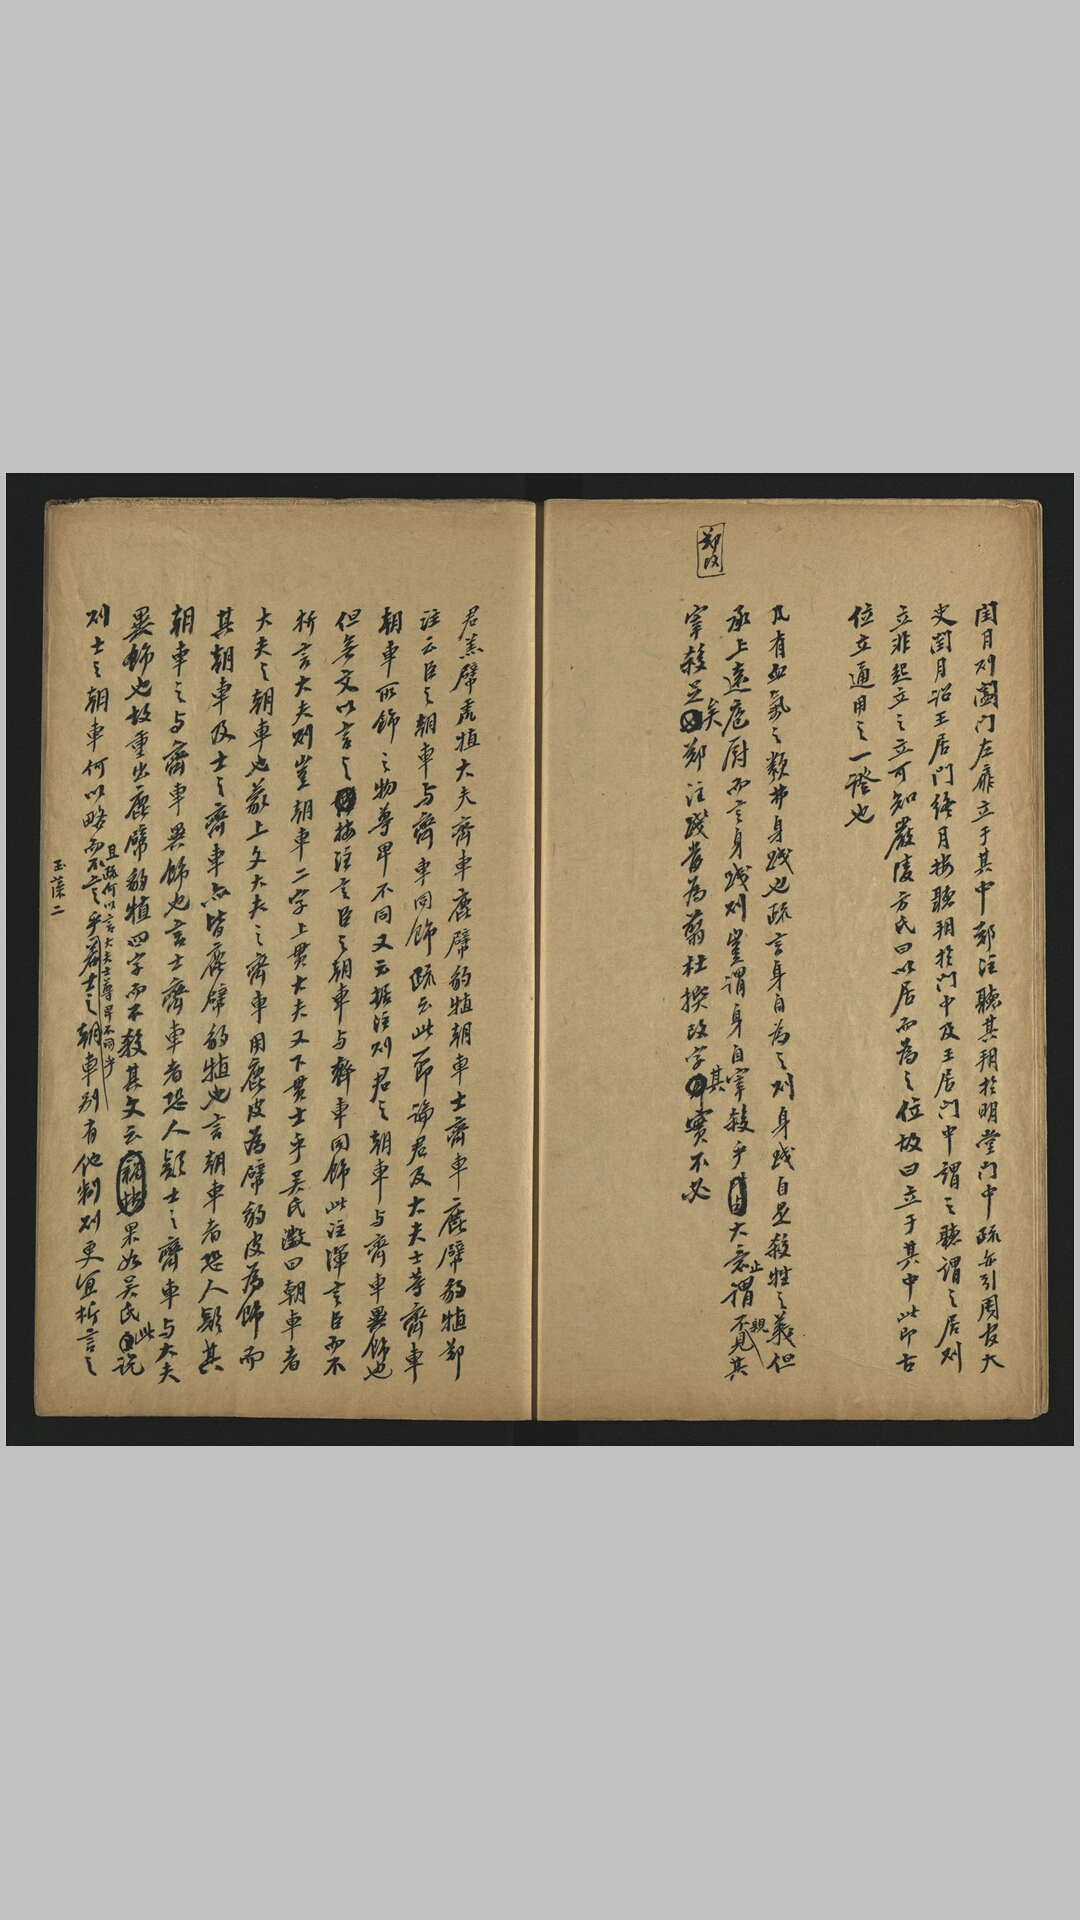 閏月則闔門左扉立于其中鄭注聽其朔於明堂門中疏亦引周官大
史閏月詔王居門終月按聽朔於門中及王居門中謂之聽謂之居則
立非起立之立可知嚴陵方氏曰以居而為之位故曰立于其中此即古
位立通用之一證也
凡有血氣之類弗身踐也疏言身自為之則身踐自是殺牲之義但
承上遠庖厨而言身踐則豈謂身自宰殺乎大意止謂不親見其
宰殺是矣鄭注踐當為翦杜撰改字其實不必
鄭改
君羔幦虎犆大夫齊車鹿幦豹犆朝車士齊車鹿幦豹犆鄭
注云臣之朝車与齊車同飾疏云此一節論君及大夫士等齊車
朝車所飾之物尊卑不同又云據注則君之朝車与齊車異飾也
但無文以言之按注言臣之朝車与齊車同飾此注渾言臣而不
析言大夫則豈朝車二字上貫大夫又下貫士乎吳氏澂曰朝車者
大夫之朝車也蒙上文大夫之齊車用鹿皮為幦豹皮為飾而
其朝車及士之齊車亦皆鹿幦豹犆也言朝車者恐人疑其
朝車之与齊車異飾也言士齊車者恐人疑士之齊車与大夫
異飾也故重出鹿幦豹犆四字而不殺其文云果如吳氏此說
則士之朝車何以略而不言乎若士之朝車別有他制則更宜析言之
且疏何以言大夫士尊卑不同乎
玉藻二